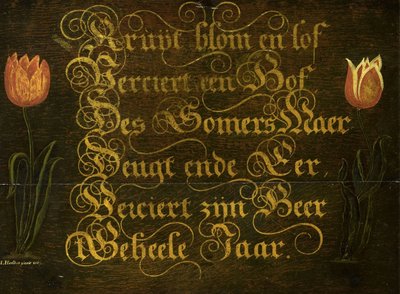 Kruyt blom en lof
Verciert een Hof
Des Somers Maer
Deugt ende Eer,
Verciert zijn Heer
t Geheele Jaar.